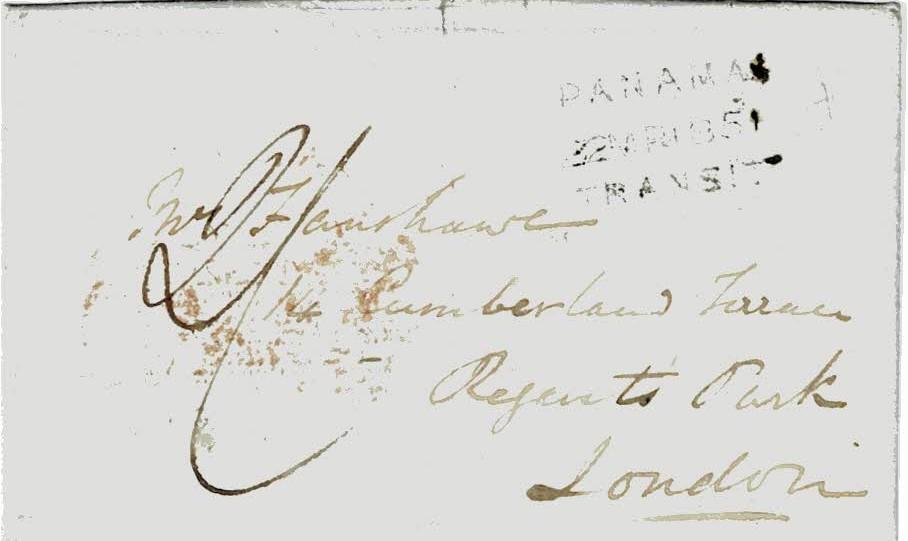 PANAMA
TRANSIT
Fanshawe
14 Cumberland Terrace
Regents Park
London